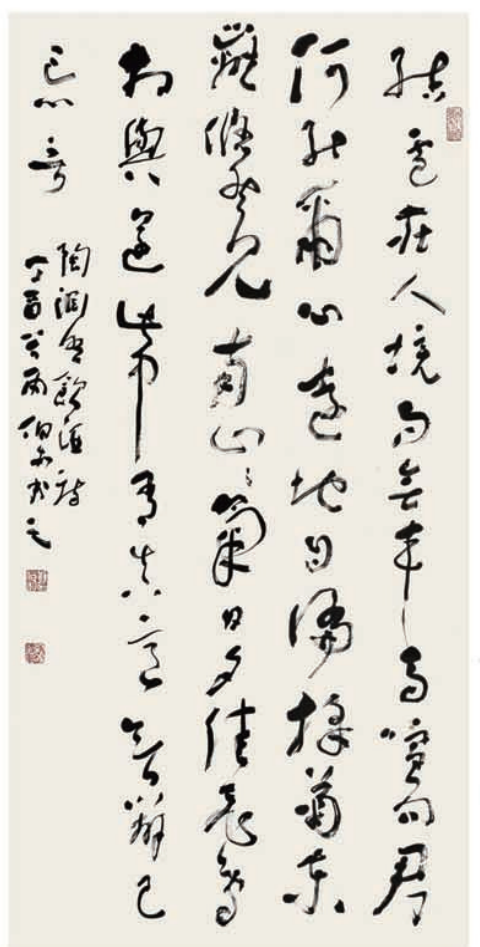 結廬在人境而無車馬喧問君
何能爾心遠地自偏採菊東
籬悠然見南山〻氣日夕佳飛鳥
相與還此中有真意欲辯已
忘言
陶淵明飲酒詩
丁酉谷雨伯書之